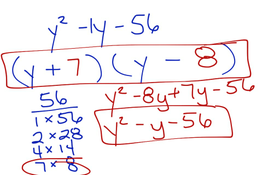 y² - 1y - 56
(y + 7)(y - 8)
56
1 × 56
2 × 28
4 × 14
7 × 8
y² - 8y + 7y - 56
y² - y - 56